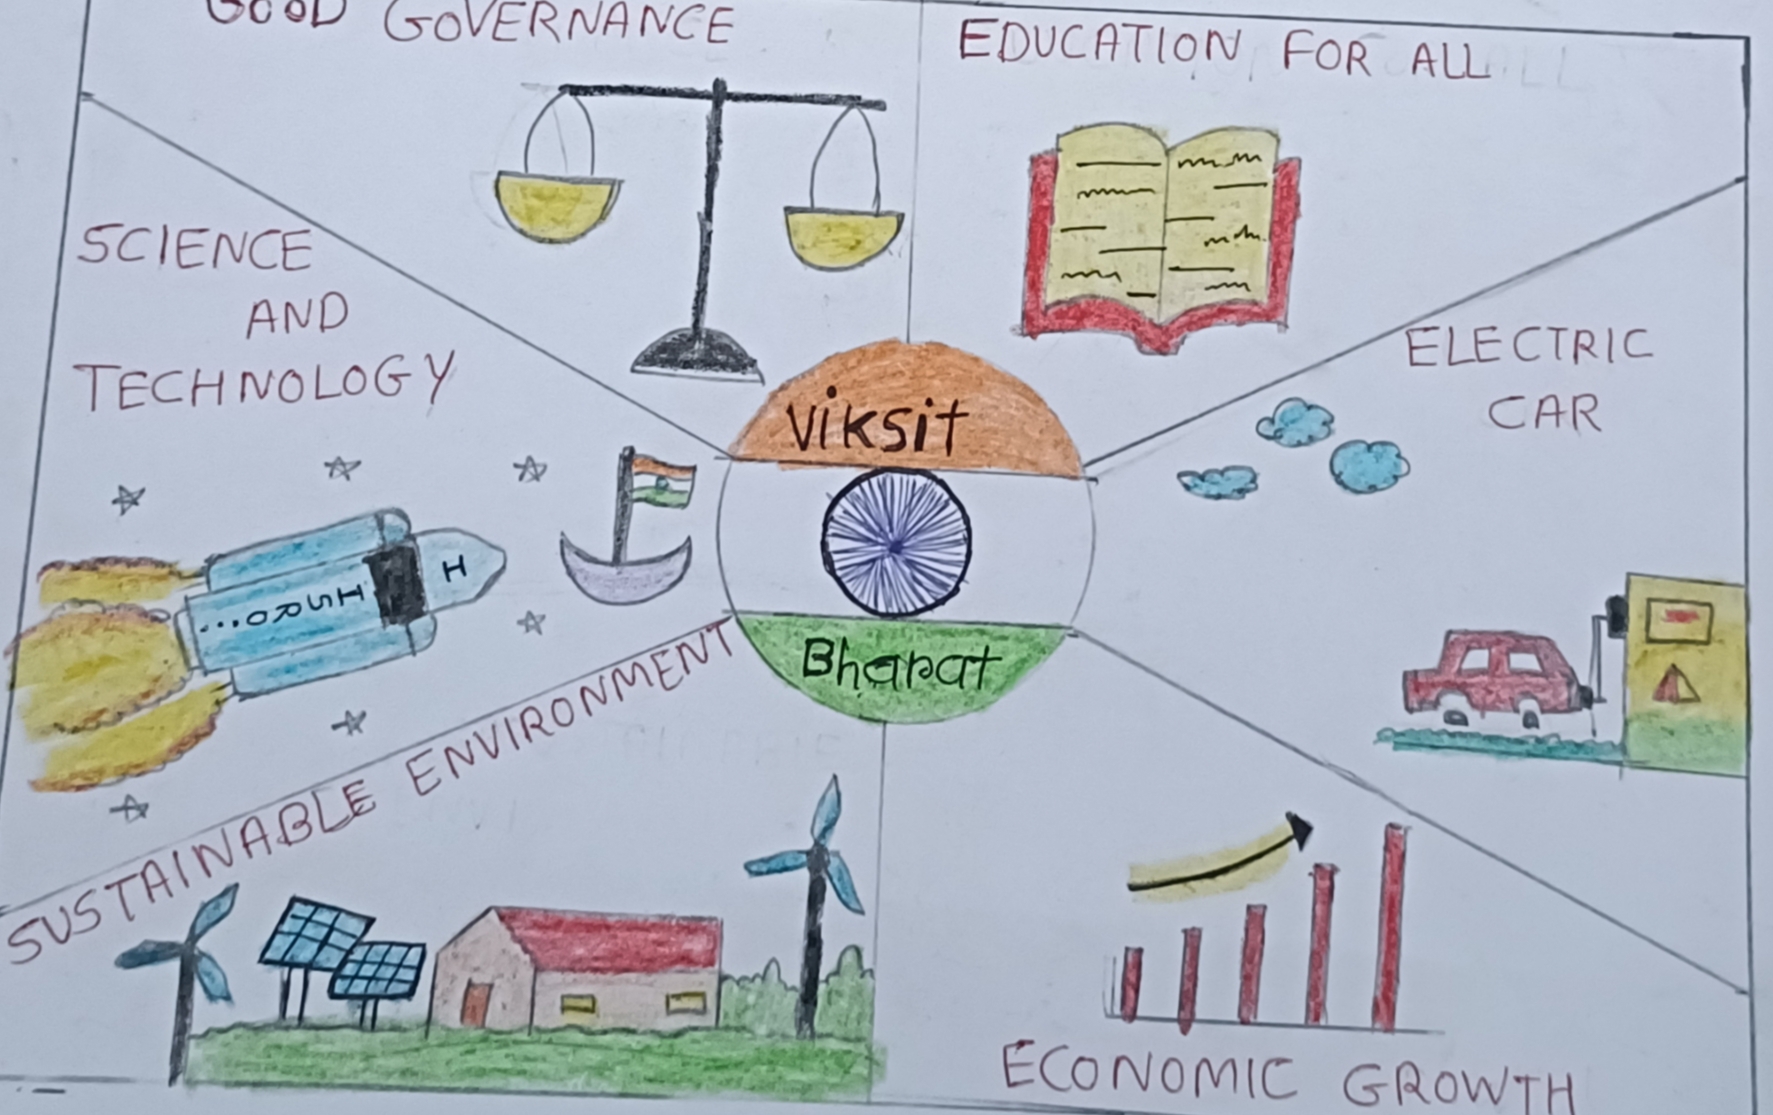 GOOD GOVERNANCE
EDUCATION FOR ALL
SCIENCE
AND
TECHNOLOGY
ELECTRIC
CAR
Viksit
Bharat
H
ISRO...
SUSTAINABLE ENVIRONMENT
ECONOMIC GROWTH